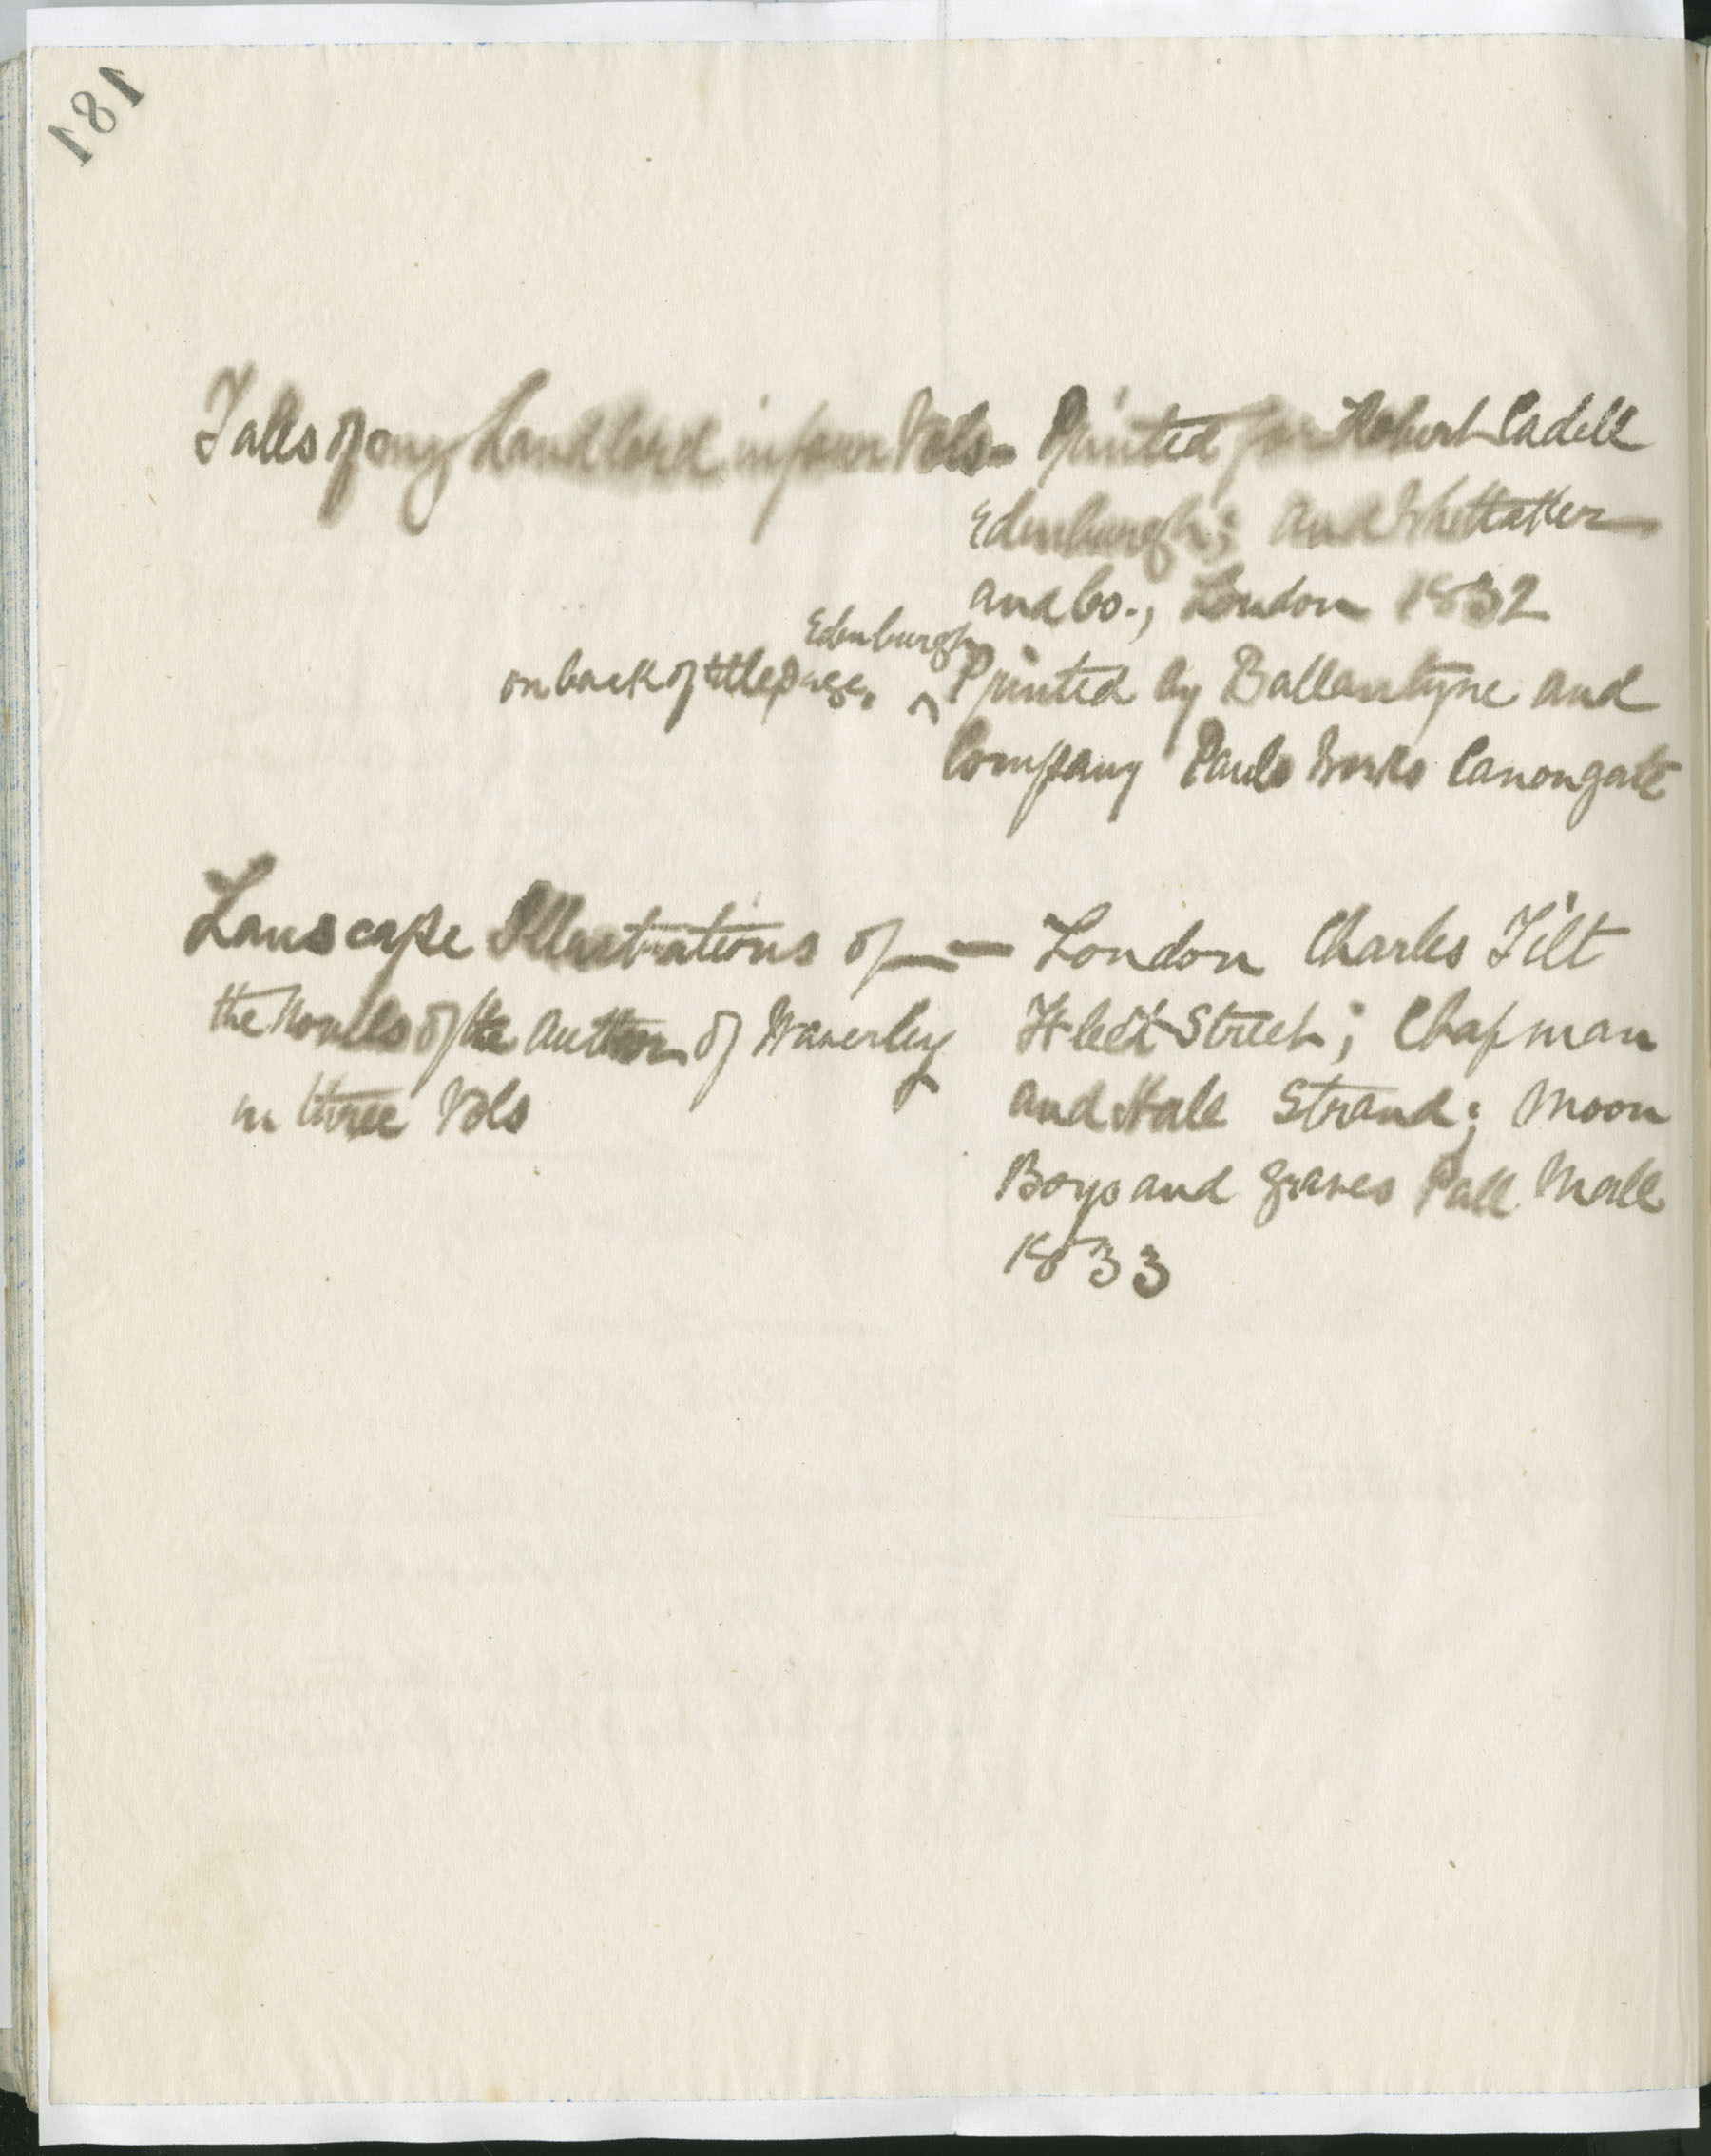 181
Tales of my Landlord in four Vols - Printed for Robert Cadell
Edinburgh; and Whittaker
and Co., London 1832
Edinburgh
on back of title page. ^ Printed by Ballantyne and
Company Pauls Works Canongate
Lanscape Illustrations of - London Charles Tilt
the Novels of the Author of Waverley Fleet Street; Chapman
in three Vols and Hall Strand; Moon
Boys and Graves Pall Mall
1833